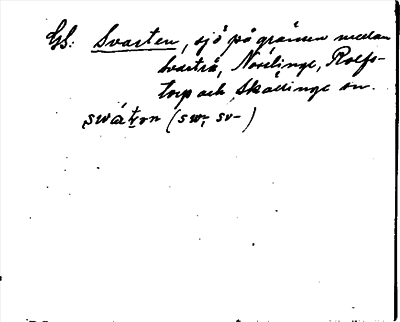 GS: Svarten, sjö på gränsen mellan
Svartrå, Nösslinge, Rolfs-
torp och Skällinge sn.
swát̠on (sw-, sv-)